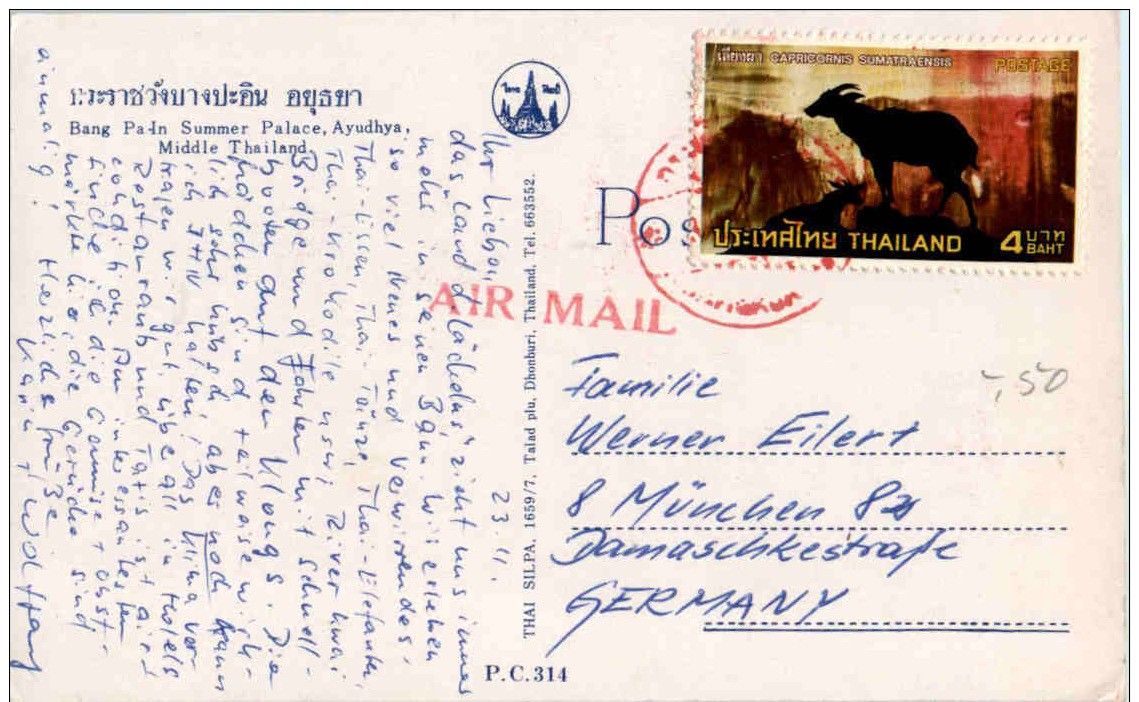 พระราชวังบางปะอิน อยุธยา
Bang Pa-In Summer Palace, Ayudhya,
Middle Thailand.
เลียงผา CAPRICORNIS SUMATRAENSIS POSTAGE
ประเทศไทย THAILAND 4 บาท
BAHT
POS
AIR MAIL
THAI SILPA, 1659/7, Talad plu, Dhonburi, Thailand. Tel. 663552.
P.C.314
-,50
Familie
Werner Eilert
8 München 82
Damaschkestraße
GERMANY
23.11.
Ihr Lieben,
das "Land d. Lächelns" zieht uns immer
mehr in seinen Bann. Wir erleben
so viel Neues und Verwirrendes.
Thai-Essen, Thai-Tänze, Thai-Elefanten,
Thai-Krokodile usw; River Kwai
Bridge und Fahrten mit Schnell-
booten auf den Klongs. Die
Mädchen sind teilweise wirk-
lich sehr hübsch, aber noch kann
ich halten! Das Klima ver-
tragen wir gut, überall in Hotels
Restaurants und Taxis ist air
condition. Am interessantesten
finde ich die Gemüse + Obst-
märkte hier, die Gerüche sind
einmalig!
Herzliche Grüße
Karin + Wolfgang